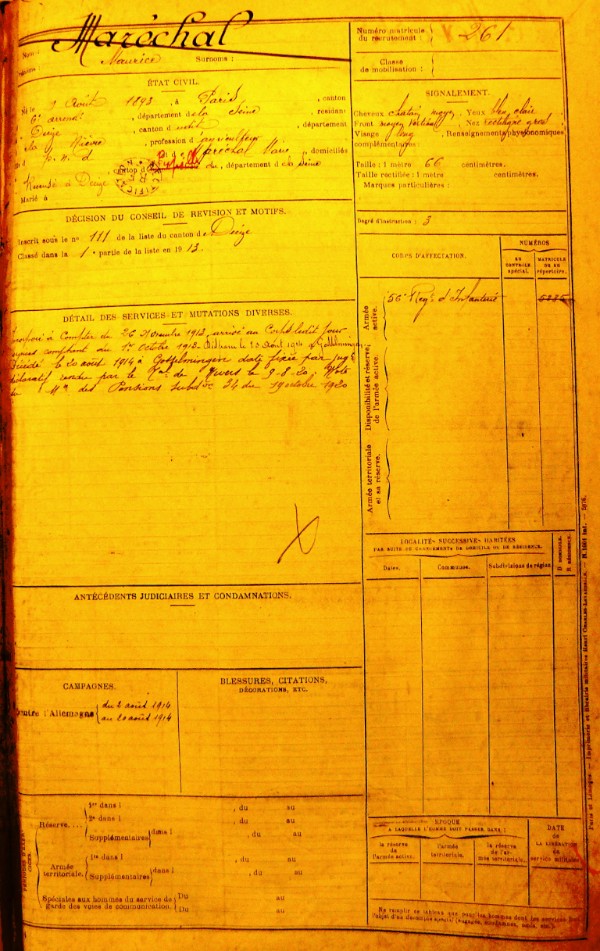 Nom : Maréchal
Maurice Surnoms :
Numéro matricule
du recrutement : 261
Classe
de mobilisation :
ÉTAT CIVIL.
Né le 9 Août 1893, à Paris, canton
6e arrondt, département de la Seine, résidant
à Decize, canton d, département
de la Nièvre, profession d
Maréchal Marie, domiciliés
, département de la Seine
Résidence à Decize
Marié à
SIGNALEMENT.
Cheveux châtain moyen Yeux bleu clair
Front moyen vertical Nez rectiligne gros
Visage long, Renseignements physionomiques
complémentaires :
Taille : 1 mètre 66 centimètres.
Taille rectifiée : 1 mètre centimètres.
Marques particulières :
Degré d'instruction : 3
DÉCISION DU CONSEIL DE REVISION ET MOTIFS.
Inscrit sous le no 111 de la liste du canton de Decize
Classé dans la 1e partie de la liste en 1913.
CORPS D'AFFECTATION.
NUMÉROS
AU CONTROLE SPÉCIAL.
MATRICULE OU AU RÉPERTOIRE.
Armée active.
56e Régt d'Infanterie
Disponibilité et réserve de l'armée active.
Armée territoriale et sa réserve.
DÉTAIL DES SERVICES ET MUTATIONS DIVERSES.
Incorporé à compter du 26 Novembre 1913, arrivé au Corps ledit jour
comptant du 1er Octobre 1913. Disparu le 20 Août 1914 à
Décédé le 20 août 1914 à Gosselmingen date fixée par jugt
déclaratif rendu par le Tal de Nevers le 9-8-20. Note
du Mre des Pensions 24 du 19 octobre 1920
LOCALITÉS SUCCESSIVES HABITÉES
PAR SUITE DE CHANGEMENTS DE DOMICILE OU DE RÉSIDENCE.
Dates.
Communes.
Subdivisions de région.
D. DOMICILE.
R. RÉSIDENCE.
ANTÉCÉDENTS JUDICIAIRES ET CONDAMNATIONS.
CAMPAGNES.
Contre l'Allemagne
du 2 août 1914
au 20 août 1914
BLESSURES, CITATIONS,
DÉCORATIONS, ETC.
PÉRIODES D'EXERCICES.
Réserve....
1re dans l , du au
2e dans l , du au
Supplémentaires dans l , du au
Armée territoriale.
1re dans l , du au
Supplémentaires dans l , du au
Spéciales aux hommes du service de
garde des voies de communication.
Du au
Du au
ÉPOQUE
A LAQUELLE L'HOMME DOIT PASSER DANS :
la réserve de l'armée active.
l'armée territoriale.
la réserve de l'armée territoriale.
DATE
DE LA LIBÉRATION
du service militaire.
Paris et Limoges. — Imprimerie et librairie militaires Henri Charles-Lavauzelle.